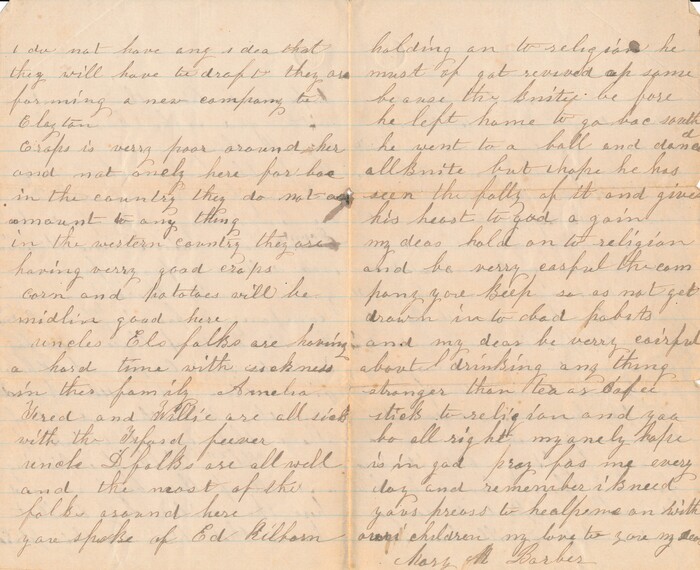 i do not have any idea that
they will have to draft they are
forming a new company to
Clayton
Craps is verry poor around her
and not onely here far bac
in the country they do not a
amount to any thing
in the western country they are
having verry good craps
corn and potatoes will be
midlin good here
uncles Els folks are having
a hard time with sickness
in ther family Amelia
Fred and Willie are all sick
with the feever
uncle D folks are all well
and the most of the
folk around here
you spoke of Ed Kilborn
holding on to religion he
must of got revived up some
because the knite be fore
he left home to go bac south
he went to a ball and danced
all knite but i hope he has
seen the folly of it and give
his heart to god a gain
my dear hold on to religion
and be verry carful the com
pany you keep so as not get
drawn in to bad habits
and my dear be verry cairful
about drinking any thing
stronger than tea or cofee
stick to religion and you
be all right my onely hope
is in god pray for me every
day and remember i kneed
your to healpe me on with
our children my love to you my dear
Mary M Barber